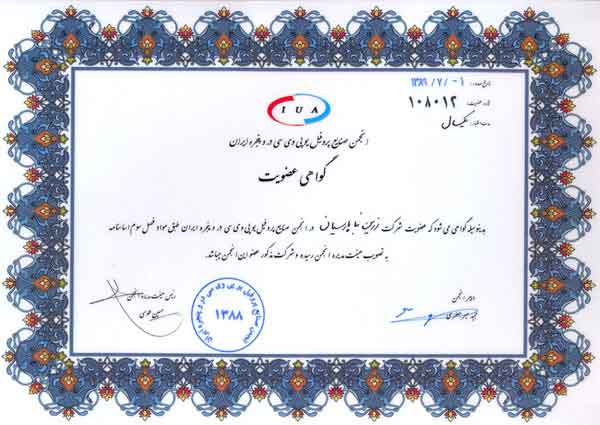 تاریخ صدور: ۱۳۸۹/۷/۰۱
شماره عضویت: ۱۰۸۰۱۲
مدت اعتبار: یکسال
IUA
انجمن صنایع پروفیل یو پی وی سی در و پنجره ایران
گواهی عضویت
بدینوسیله گواهی می شود که عضویت شرکت زرین نما پارسیان در انجمن صنایع پروفیل یو پی وی سی در و پنجره ایران طبق مواد فصل سوم اساسنامه
به تصویب هیئت مدیره انجمن رسیده و شرکت مذکور عضو این انجمن میباشد.
دبیر انجمن
رئیس هیئت مدیره انجمن
انجمن صنایع پروفیل یو پی وی سی در و پنجره ایران
۱۳۸۸